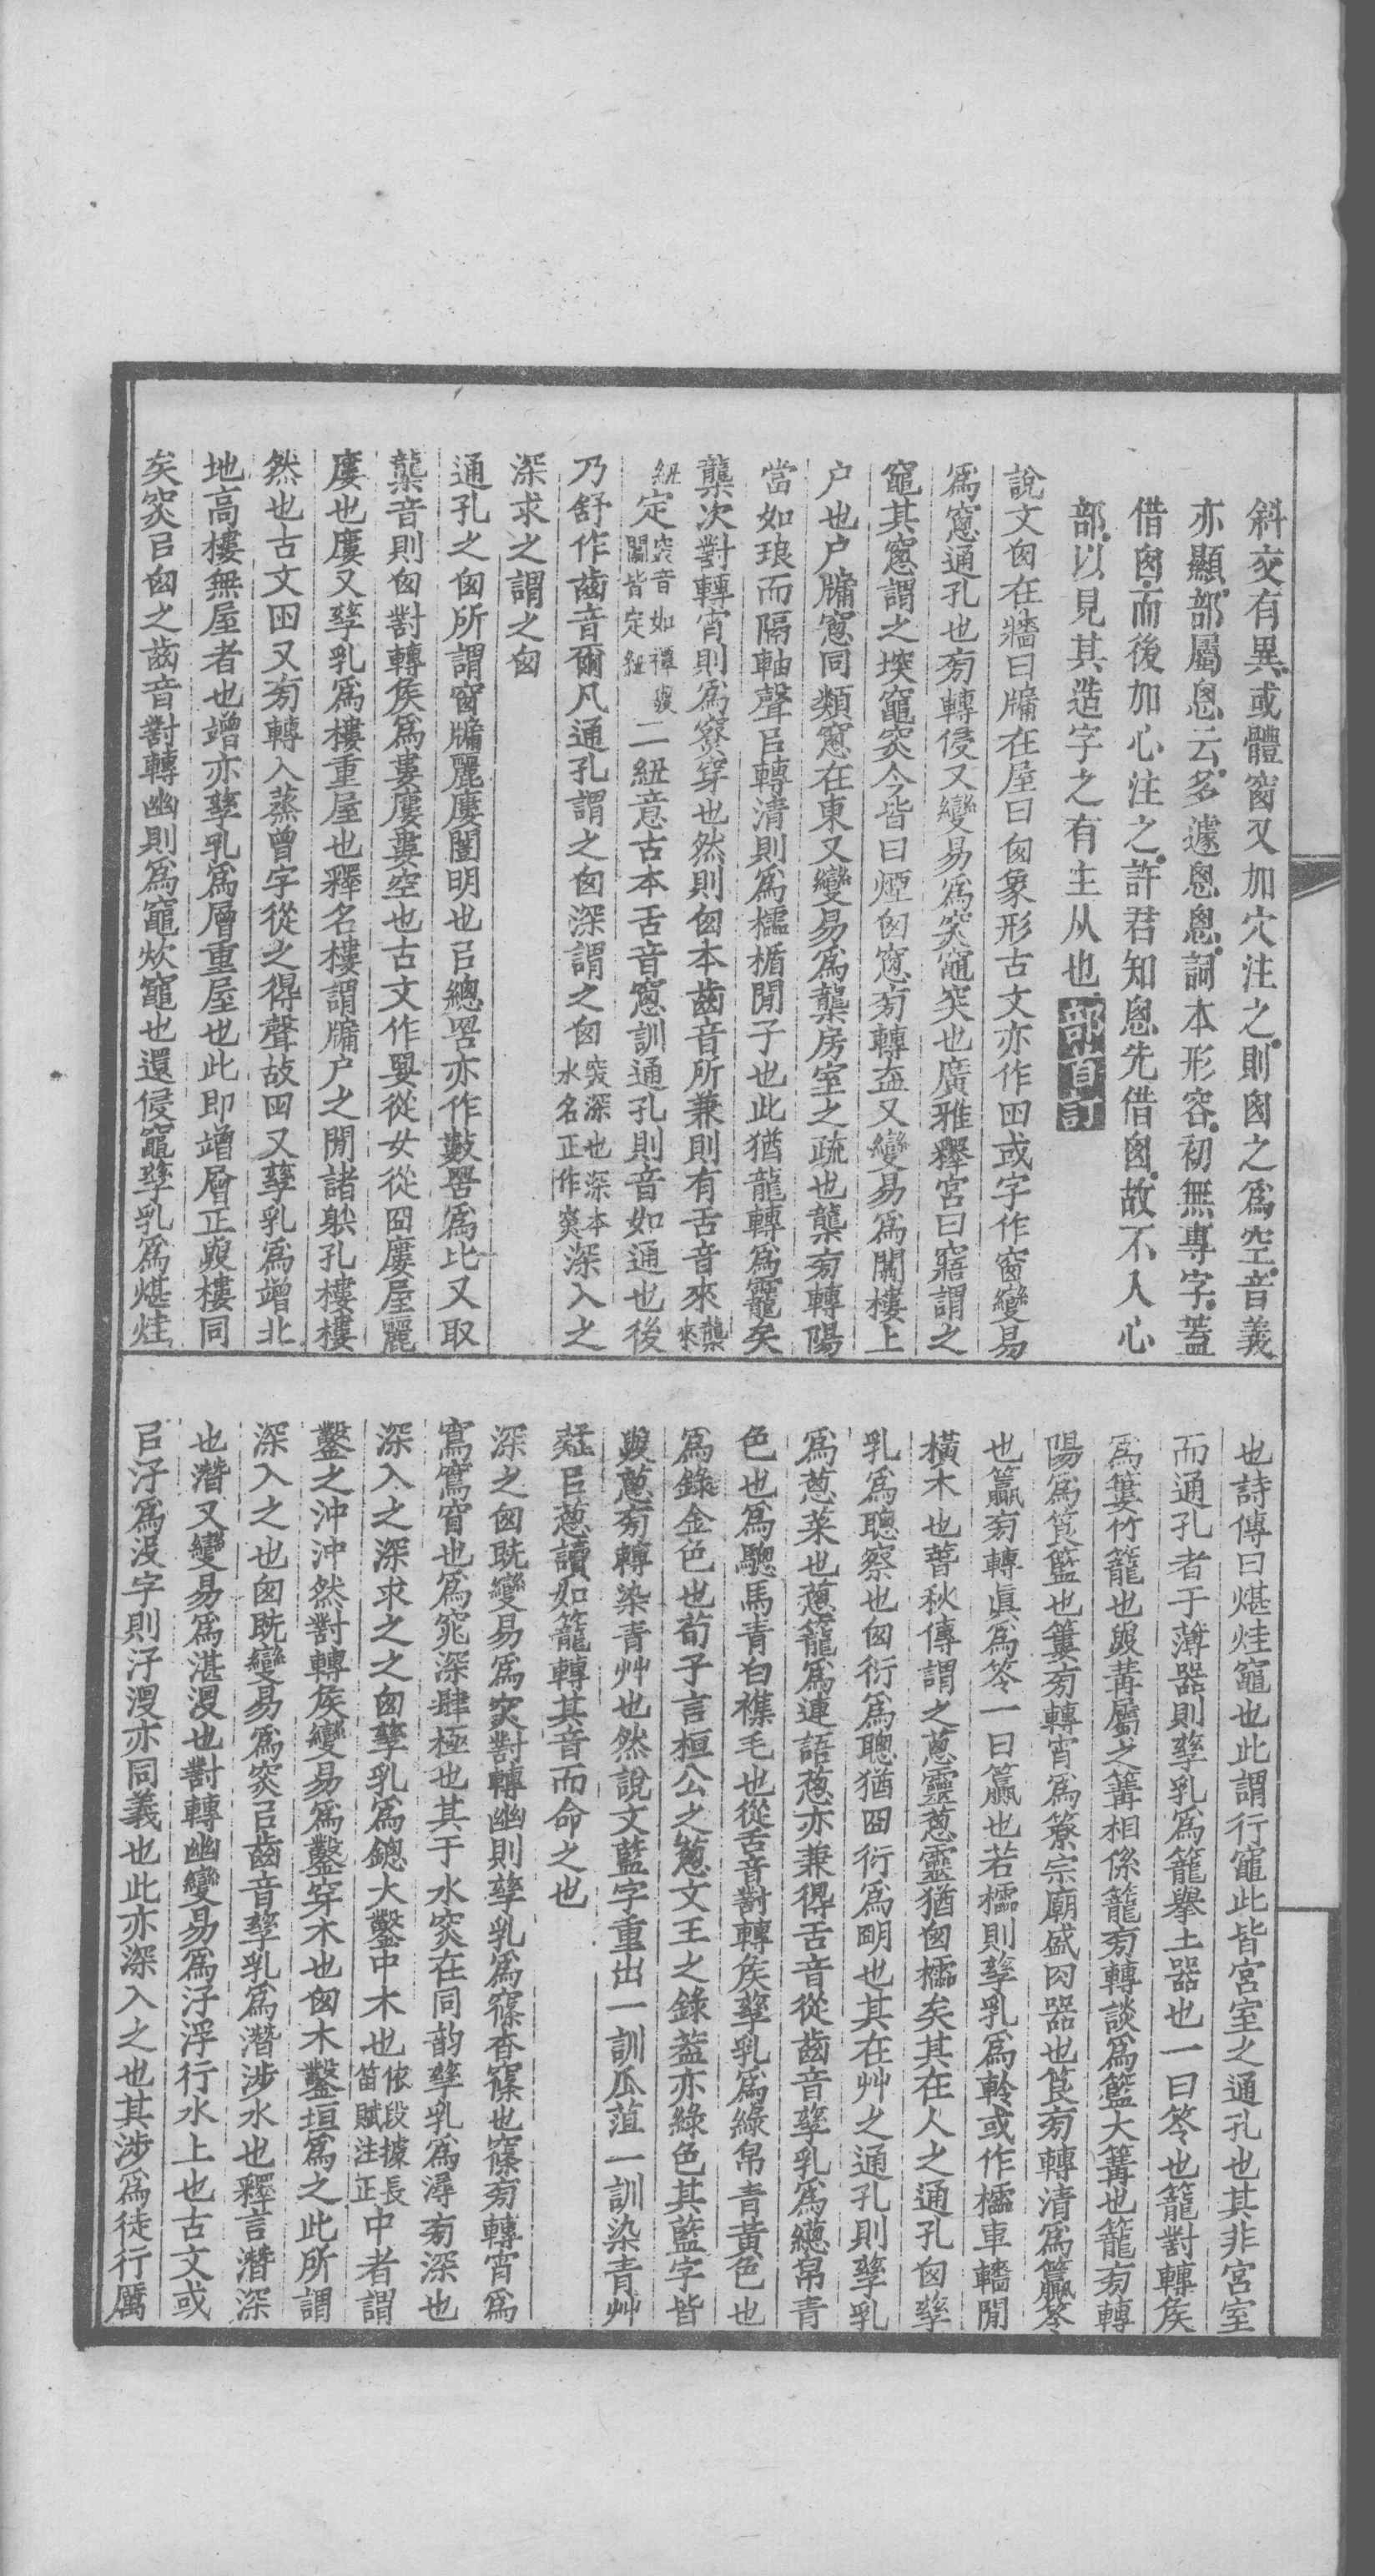 斜交有異。或體窗又加穴注之。則囪之爲空。音義
亦顯。部屬恖云。多遽恖恖。詞本形容。初無專字。蓋
借囪。而後加心注之。許君知恖先借囪。故不入心
部。以見其造字之有主从也。部首訂
說文囪在牆曰牖在屋曰囪象形古文亦作囧或字作窗變易
爲窻通孔也旁轉侵又變易爲突竈突也廣雅釋宮曰窹謂之
竈其窻謂之堗竈突今皆曰煙囪窻旁轉盍又變易爲闟樓上
户也户牖窻同類窻在東又變易爲龒房室之疏也龒旁轉陽
當如琅而隔軸聲㠯轉清則爲櫺楯閒子也此猶龍轉爲龗矣
龒次對轉宵則爲寮穿也然則囪本齒音所兼則有舌音來龒來
紐定突音如禫廋闟皆定紐二紐意古本舌音窻訓通孔則音如通也後
乃舒作齒音爾凡通孔謂之囪深謂之囪突深也深本水名正作突深入之
深求之謂之囪
通孔之囪所謂窗牖麗廔闓明也㠯總罟亦作數罟爲比又取
龒音則囪對轉矦爲婁廔婁空也古文作㛫從女從囧廔屋麗
廔也廔又孳乳爲樓重屋也釋名樓謂牖户之閒諸䠶孔樓樓
然也古文囧又旁轉入蒸曾字從之得聲故囧又孳乳爲竲北
地高樓無屋者也竲亦孳乳爲層重屋也此即竲層正與樓同
矣突㠯囪之齒音對轉幽則爲竈炊竈也還侵竈孳乳爲煁烓
也詩傳曰煁烓竈也此謂行竈此皆宮室之通孔也其非宮室
而通孔者于薄器則孳乳爲籠舉土器也一曰笭也籠對轉矦
爲簍竹籠也與冓屬之篝相係籠旁轉談爲籃大篝也籠旁轉
陽爲筤籃也簍旁轉宵爲簝宗廟盛肉器也筤旁轉清爲籯笭
也籯旁轉眞爲笭一曰籯也若櫺則孳乳爲軨或作櫺車轖閒
橫木也萅秋傳謂之蔥靈蔥靈猶囪櫺矣其在人之通孔囪孳
乳爲聰察也囪衍爲聰猶囧衍爲朙也其在艸之通孔則孳乳
爲蔥菜也蔥籠爲連語蔥亦兼得舌音從齒音孳乳爲繱帛青
色也爲驄馬青白襍毛也從舌音對轉矦孳乳爲綠帛青黃色也
爲錄金色也荀子言桓公之蔥文王之錄蓋亦綠色其藍字皆
與蔥旁轉染青艸也然說文藍字重出一訓瓜菹一訓染青艸
疑㠯蔥讀如籠轉其音而命之也
深之囪旣變易爲突對轉幽則孳乳爲窱杳窱也窱旁轉宵爲
窵窵窅也爲窕深肆極也其于水突在同韵孳乳爲潯旁深也
深入之深求之之囪孳乳爲鏓大鑿中木也依段據長笛賦注正中者謂
鑿之沖沖然對轉矦變易爲鑿穿木也囪木鑿垣爲之此所謂
深入之也囪旣變易爲突㠯齒音孳乳爲潛涉水也釋言潛深
也潛又變易爲湛沒也對轉幽變易爲汓浮行水上也古文或
㠯汓爲沒字則汓沒亦同義也此亦深入之也其涉爲徒行厲